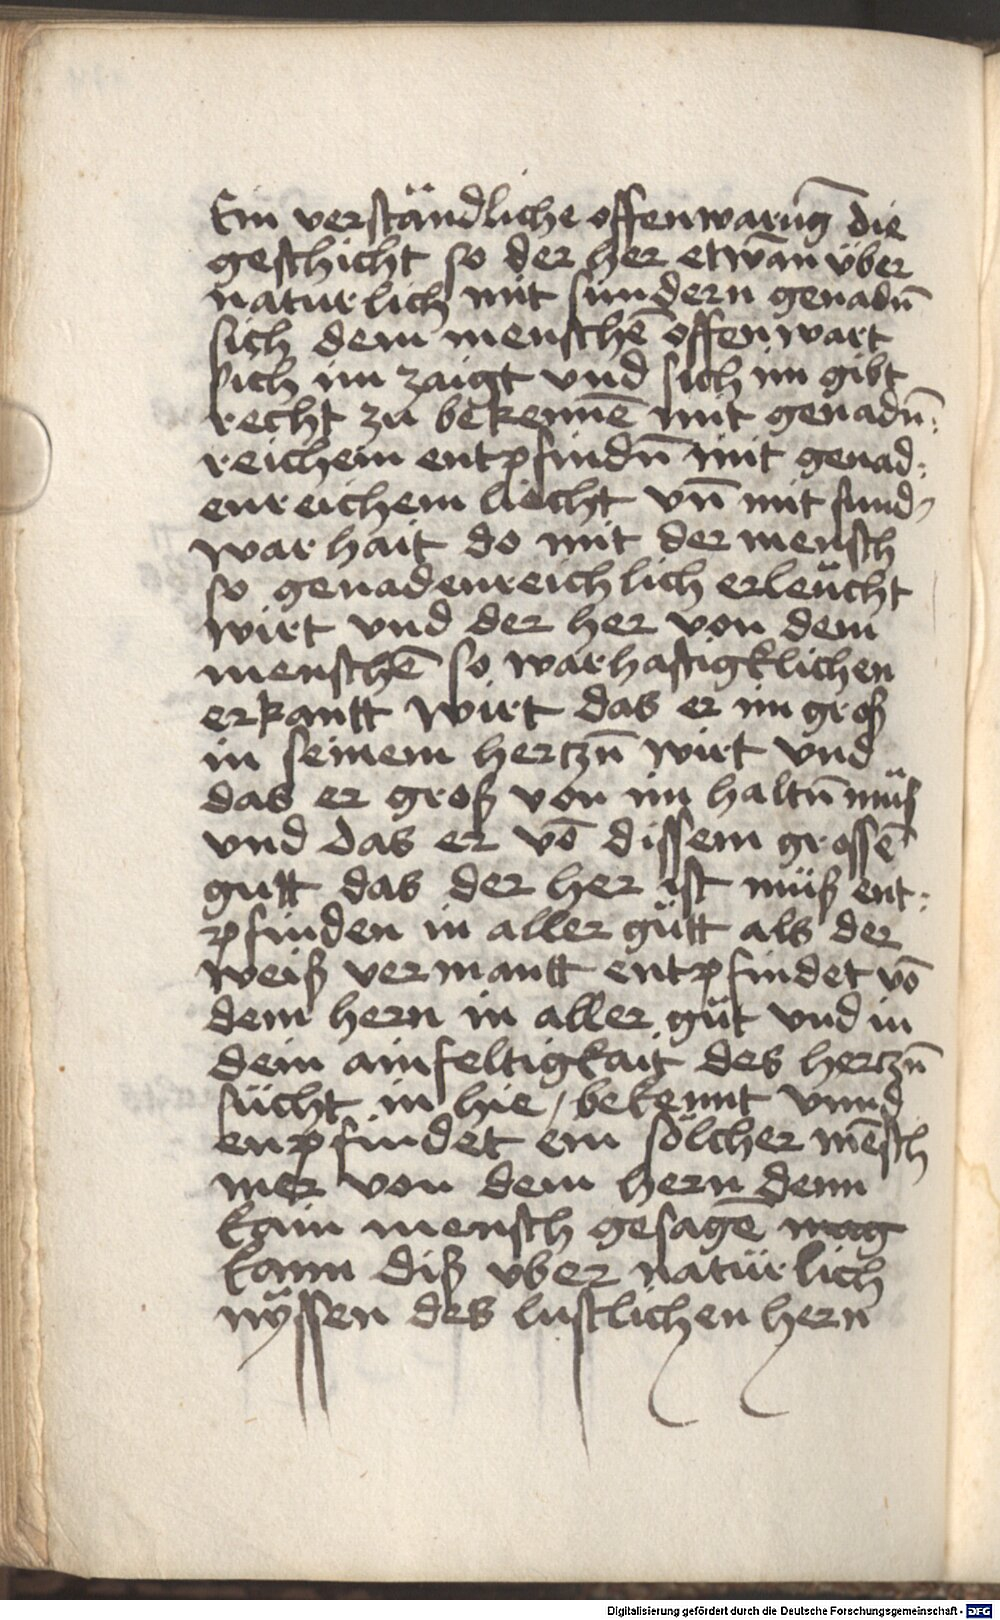 Ein verständliche offenwarūg die
geschicht so der her etwan über
naturlich mit sundern genadn̄
sich dem menschē offenwart
sich im zaigt vnd sich im gibt
recht zu bekennē mit genadn̄:
reichem entpfindn̄ mit genad:
enreichem liecht vn̄ mit sund
warhait do mit der mensch
so genadenreichlich erleücht
wirt vnd der her von dem
menschē so warhafftigklichen
erkantt wirt das er im groß
in seinem hertzn̄ wirt vnd
das er groß von im haltn̄ müß
vnd das er vō dissem grossē
gutt das der her ist müß ent:
pfinden in aller gütt als der
weiß vermantt entpfindet vō
dem hern in aller güt vnd in
dem ainfeltigkait des hertzn̄
sücht in hie / bekennt vnnd
enpfindet ein sölcher mēsch
mer von dem hern denn
kain mensch gesagē mag
kann diß vber natürlich
nÿssen des lustlichen hern
Digitalisierung gefördert durch die Deutsche Forschungsgemeinschaft - DFG